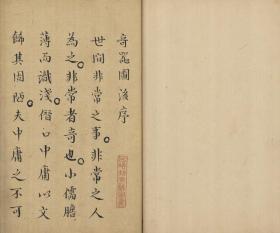 奇冤圖後序
世間非常之事非常之人
為之非常者奇也小儒膽
薄而識淺僭口中庸以文
飾其固陋夫中庸之不可